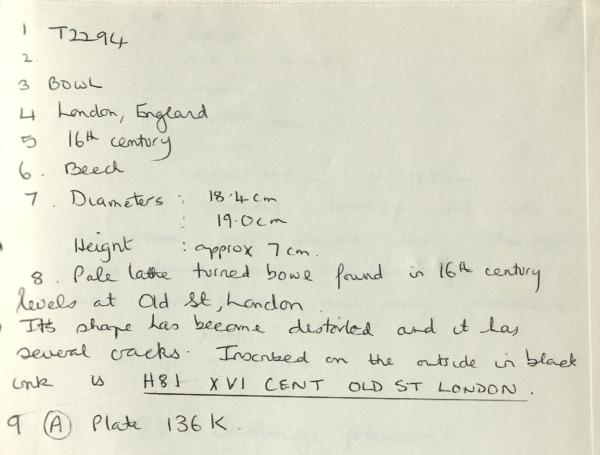 1 T2294
2.
3 BOWL
4 London, England
5 16th century
6. Beech
7. Diameters : 18.4cm
: 19.0cm
Height : approx 7cm.
8. Pale lathe turned bowl found in 16th century
levels at Old St, London.
Its shape has become distorted and it has
several cracks. Inscribed on the outside in black
ink is H81 XVI CENT OLD ST LONDON.
9 (A) Plate 136K.